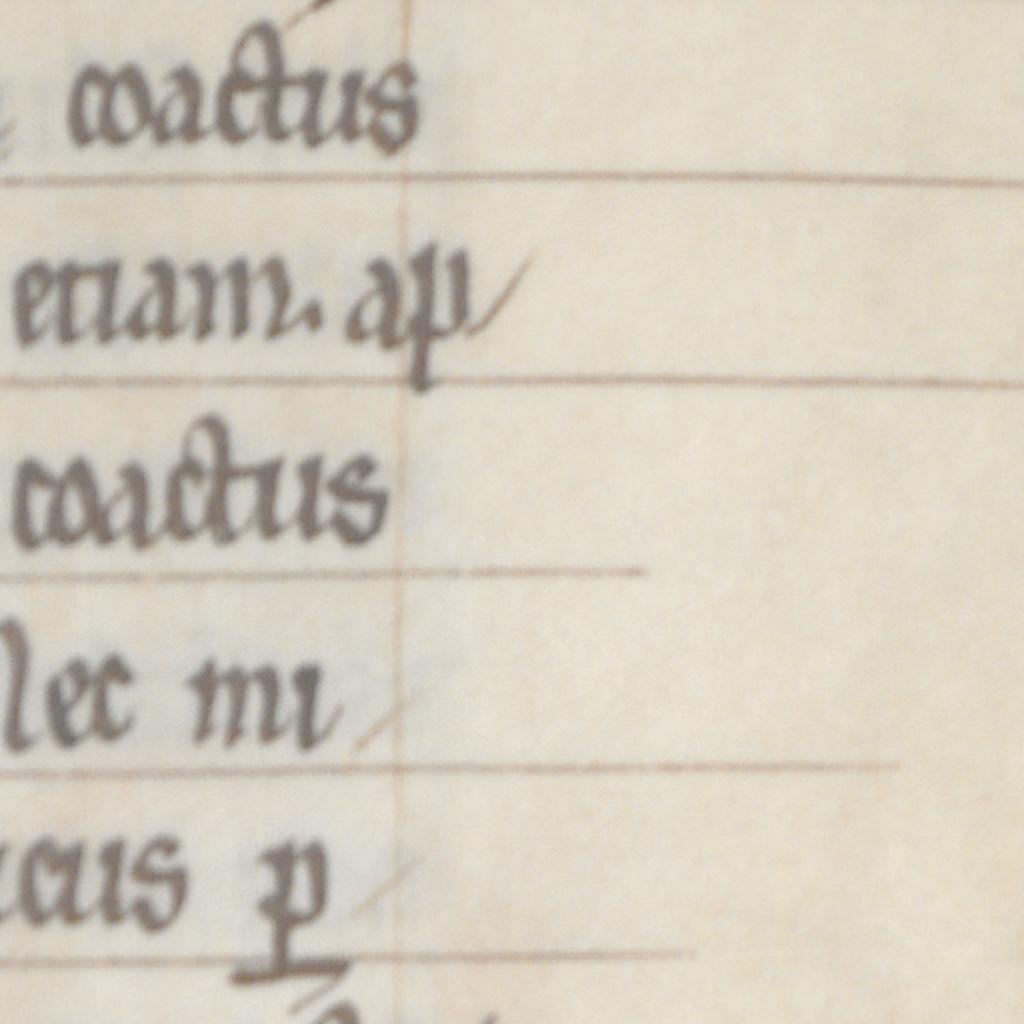 coactus
etiam. ap
coactus
lec mi
icus ꝑ